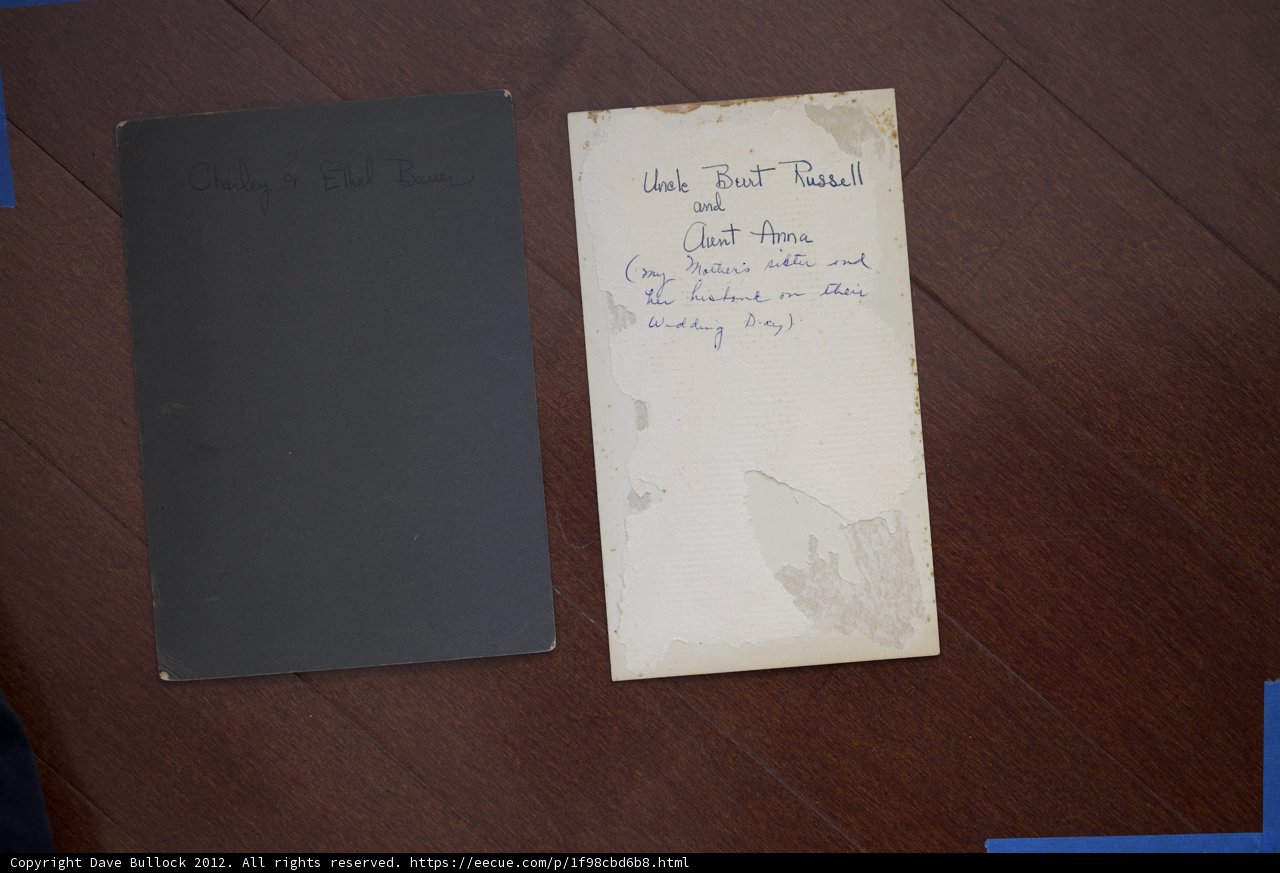 Charley & Ethel Bauer
Uncle Burt Russell
and
Aunt Anna
(my Mother's sister and
her husband on their
Wedding Day)
Copyright Dave Bullock 2012. All rights reserved. https://eecue.com/p/1f98cbd6b8.html